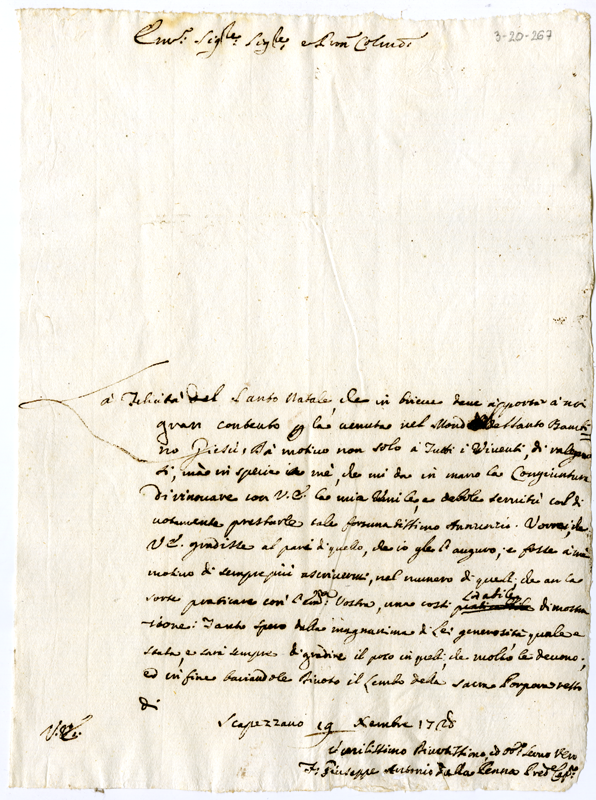 3-20-267
Em.º Sig.re Sig.re, e Pron Colmo:
La Felicità del Santo Natale, che in brieve deve apportar à noi
gran contento p la venuta nel Mondo del Santo Bambi=
no Giesù, dà motivo non solo à Tutti i Viventi, di
ti, mà in specie à mè, che mi da in mano la Congiuntura
di rinovare con V.E. la mia Umile, e debole servitù col di
votamente prestarle tale fortunatissimo Annunzio. Vorrei, che
V.E. gradisse al pari di quello, che io gle l'auguro, e fosse à mè
motivo di sempre più ascrivermi, nel numero di quelli, che an la
sorte praticare con l'Em.za Vostra, una così Lodabile dimostra
zione: Tanto spero dalla magnanima di Lei generosità quale e
stata, e sarà sempre di gradire il poco in quelli, che molto le devono;
ed in fine baciandole Divoto il Lembo della Sacra Porpora resto
di
Scapezzano 19 Xembre 17
V.E.
Umilissimo Divotissimo, ed Obb.º Servo Vero
F. Giuseppe Antonio dalla Penna Pred.e Capº